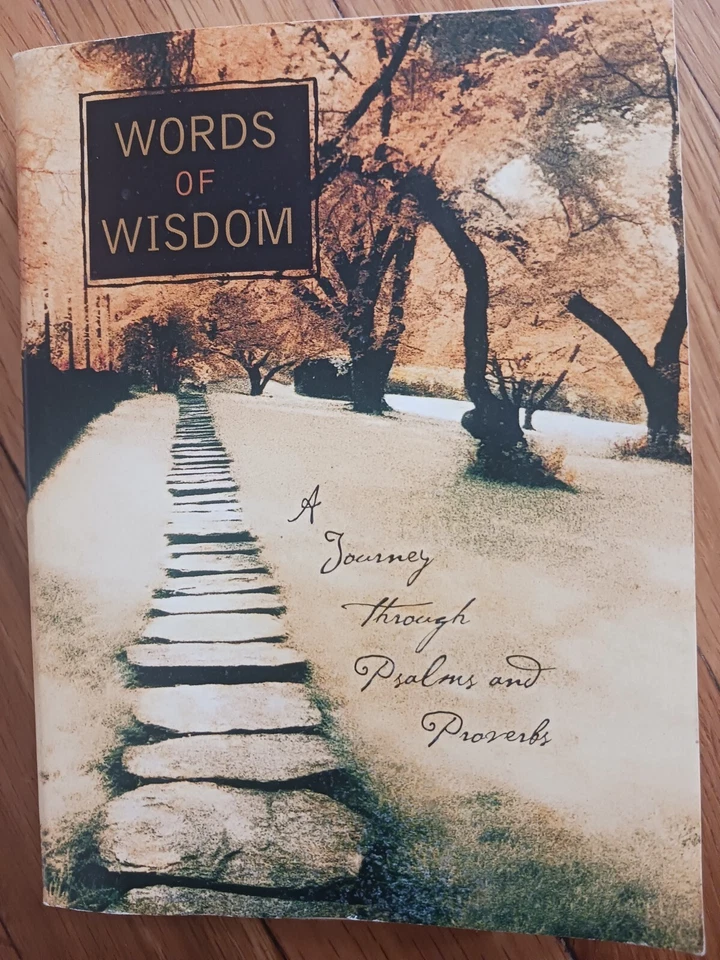 WORDS
OF
WISDOM
A
Journey
through
Psalms and
Proverbs